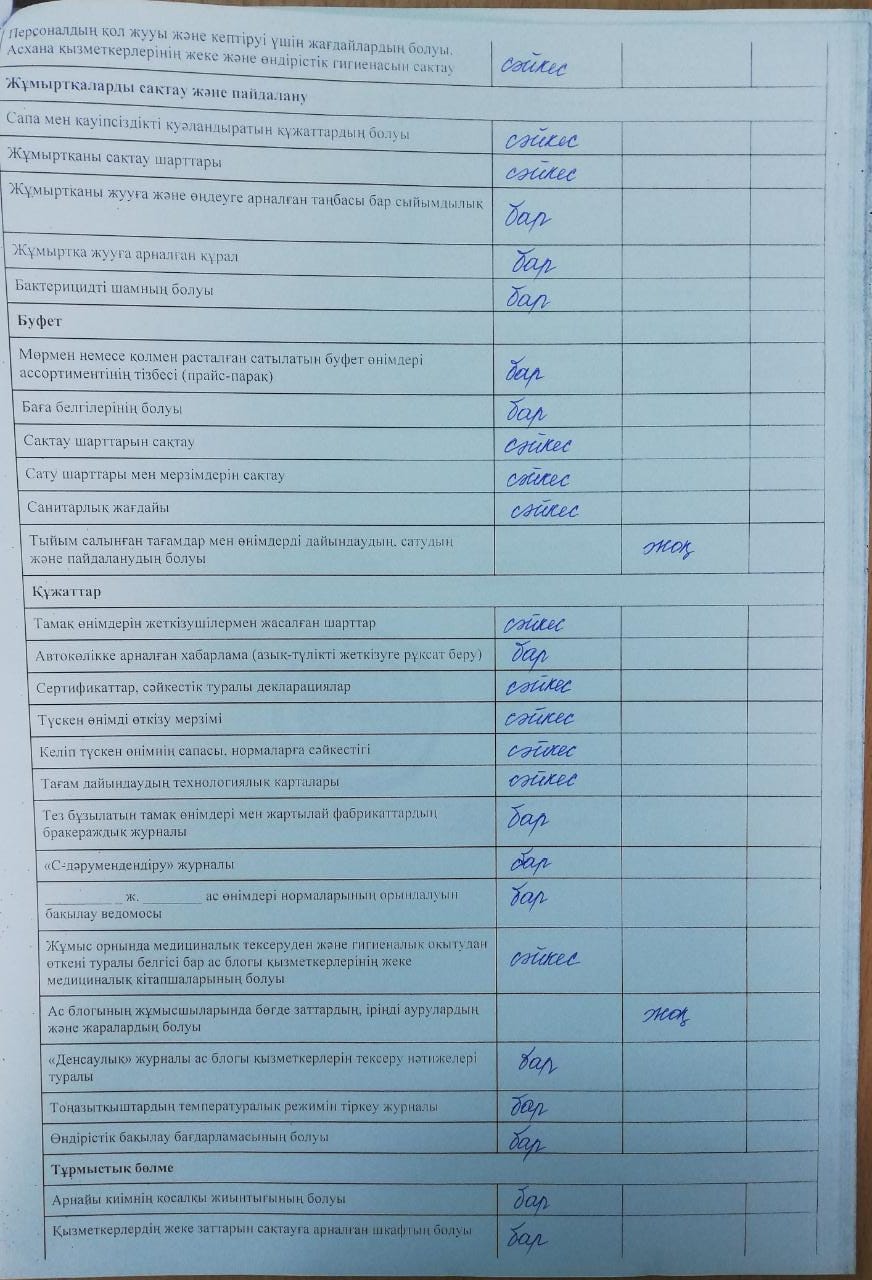 Персоналдың қол жууы және кептіруі үшін жағдайлардың болуы.
Асхана қызметкерлерінің жеке және өндірістік гигиенасын сақтау сәйкес
Жұмыртқаларды сақтау және пайдалану
Сапа мен қауіпсіздікті куәландыратын құжаттардың болуы сәйкес
Жұмыртқаны сақтау шарттары сәйкес
Жұмыртқаны жууға және өңдеуге арналған таңбасы бар сыйымдылық бар
Жұмыртқа жууға арналған құрал бар
Бактерицидті шамның болуы бар
Буфет
Мөрмен немесе қолмен расталған сатылатын буфет өнімдері
ассортиментінің тізбесі (прайс-парақ) бар
Баға белгілерінің болуы бар
Сақтау шарттарын сақтау сәйкес
Сату шарттары мен мерзімдерін сақтау сәйкес
Санитарлық жағдайы сәйкес
Тыйым салынған тағамдар мен өнімдерді дайындаудың, сатудың
және пайдаланудың болуы жоқ
Құжаттар
Тамақ өнімдерін жеткізушілермен жасалған шарттар сәйкес
Автокөлікке арналған хабарлама (азық-түлікті жеткізуге рұқсат беру) бар
Сертификаттар, сәйкестік туралы декларациялар сәйкес
Түскен өнімді өткізу мерзімі сәйкес
Келіп түскен өнімнің сапасы, нормаларға сәйкестігі сәйкес
Тағам дайындаудың технологиялық карталары сәйкес
Тез бұзылатын тамақ өнімдері мен жартылай фабрикаттардың
бракераждық журналы бар
«С-дәрумендендіру» журналы бар
__________ ж. ________ ас өнімдері нормаларының орындалуын
бақылау ведомосы бар
Жұмыс орнында медициналық тексеруден және гигиеналық оқытудан
өткені туралы белгісі бар ас блогы қызметкерлерінің жеке
медициналық кітапшаларының болуы сәйкес
Ас блогының жұмысшыларында бөгде заттардың, іріңді аурулардың
және жаралардың болуы жоқ
«Денсаулық» журналы ас блогы қызметкерлерін тексеру нәтижелері
туралы бар
Тоңазытқыштардың температуралық режимін тіркеу журналы бар
Өндірістік бақылау бағдарламасының болуы бар
Тұрмыстық бөлме
Арнайы киімнің қосалқы жиынтығының болуы бар
Қызметкерлердің жеке заттарын сақтауға арналған шкафтың болуы бар